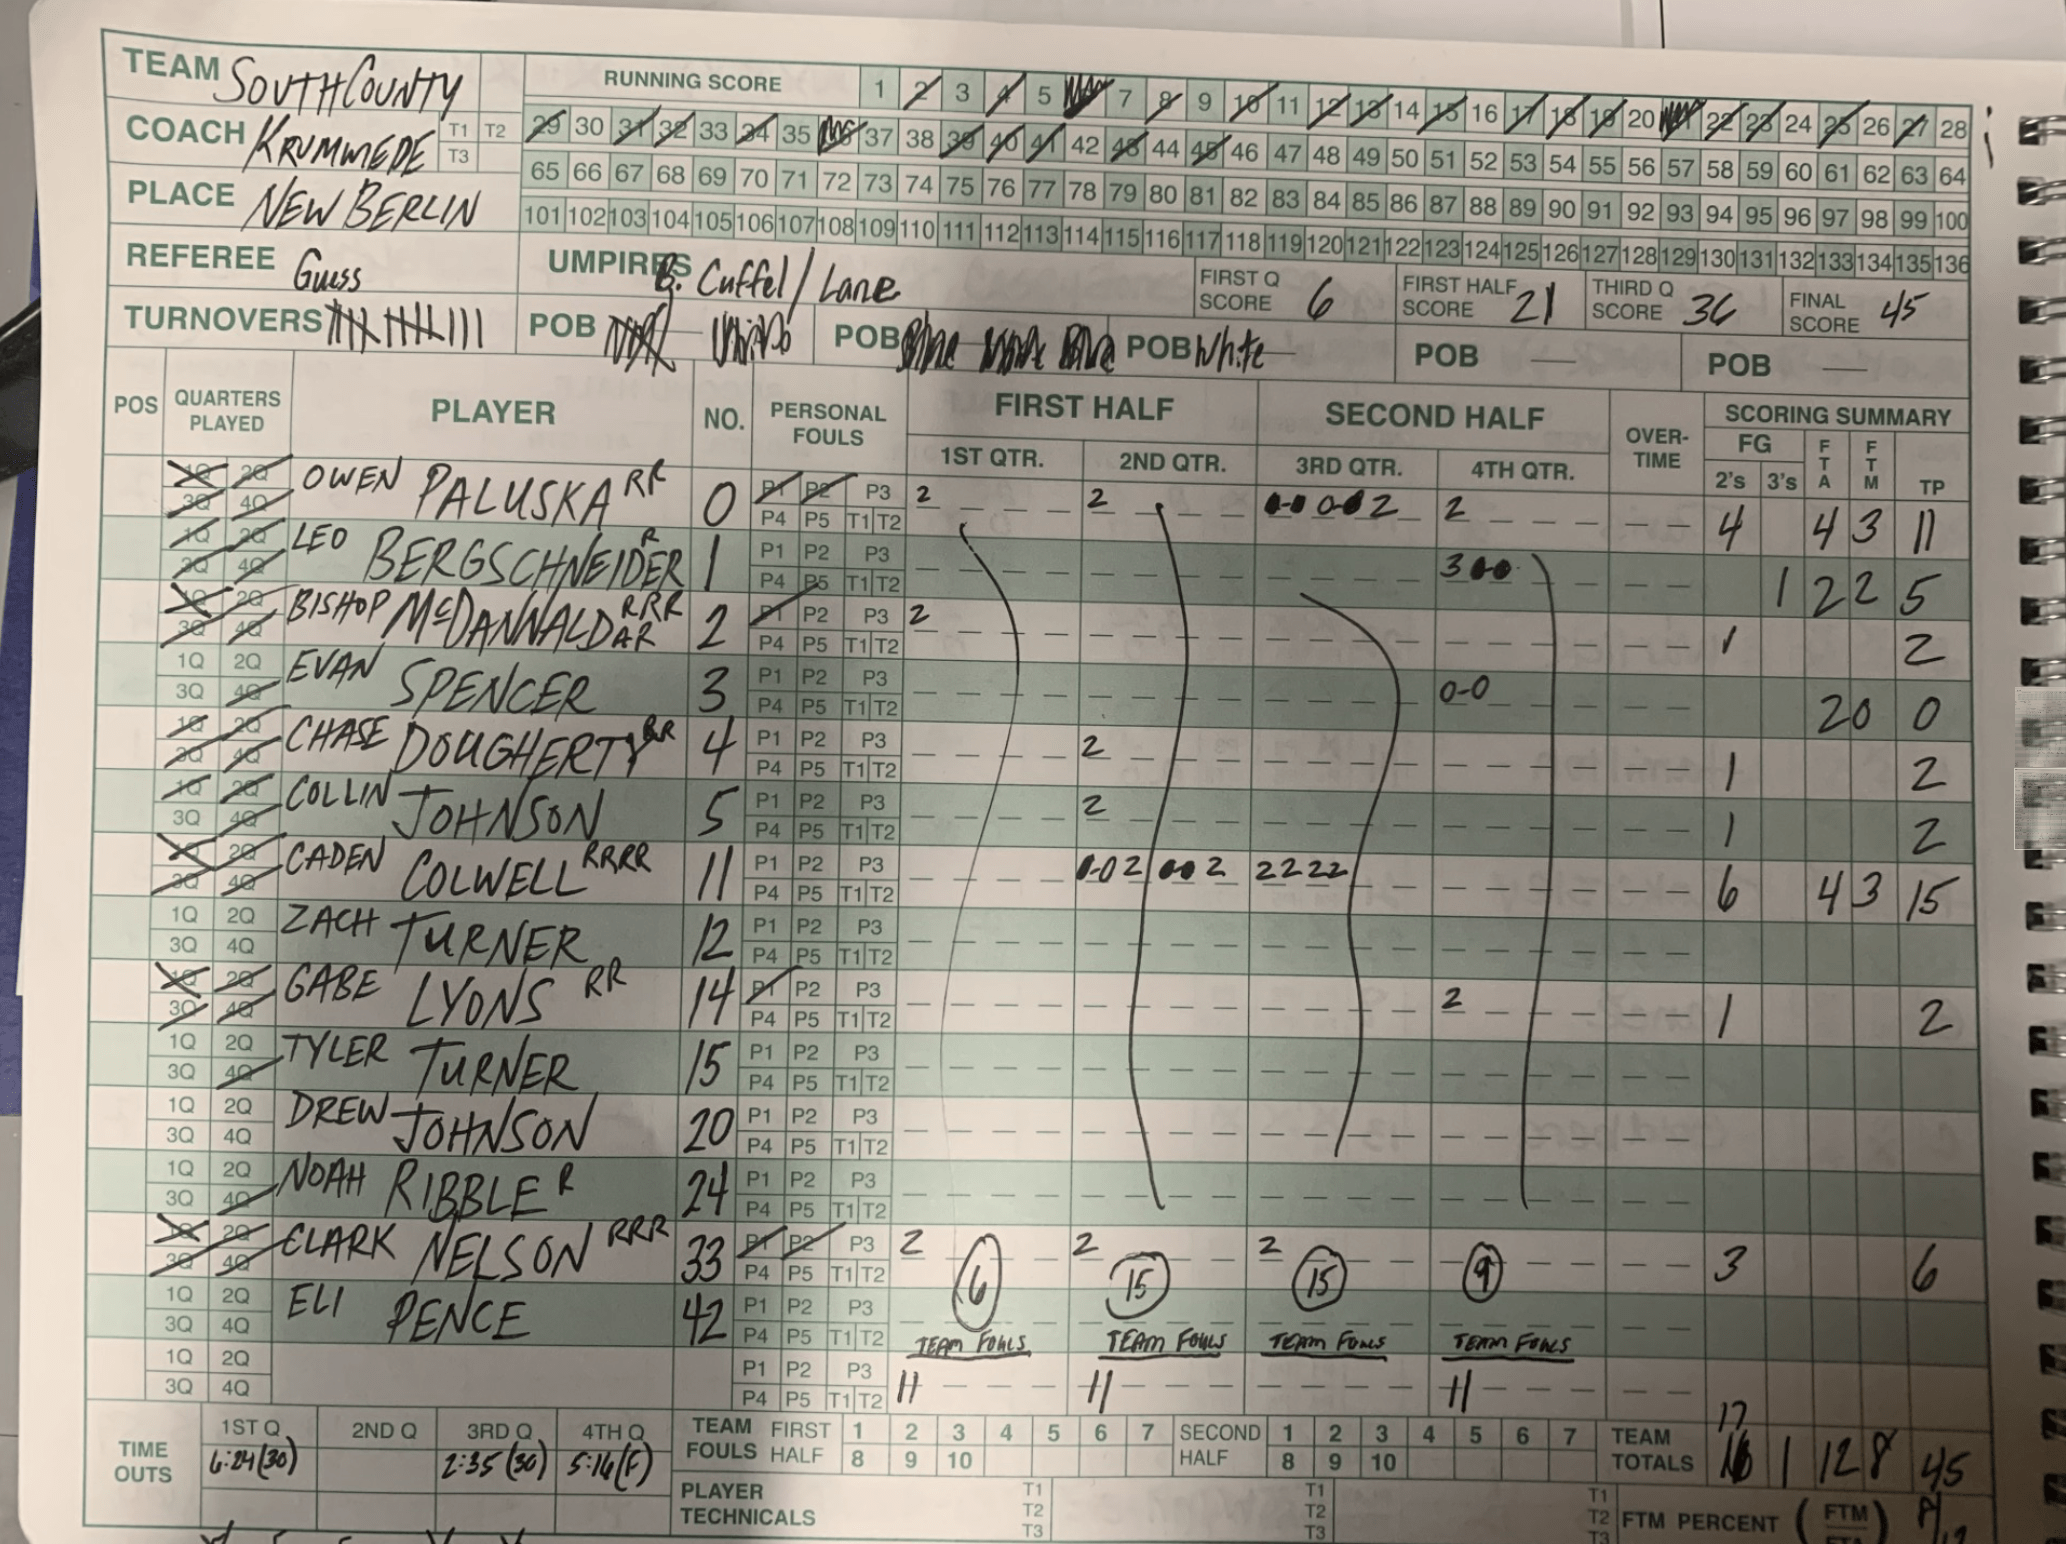 TEAM SOUTH COUNTY RUNNING SCORE 1 2 3 4 5 7 8 9 10 11 12 13 14 15 16 17 18 19 20 22 23 24 25 26 27 28
COACH KRUMWIEDE T1 T2 T3 29 30 31 32 33 34 35 37 38 39 40 41 42 43 44 45 46 47 48 49 50 51 52 53 54 55 56 57 58 59 60 61 62 63 64
65 66 67 68 69 70 71 72 73 74 75 76 77 78 79 80 81 82 83 84 85 86 87 88 89 90 91 92 93 94 95 96 97 98 99 100
PLACE NEW BERLIN 101 102 103 104 105 106 107 108 109 110 111 112 113 114 115 116 117 118 119 120 121 122 123 124 125 126 127 128 129 130 131 132 133 134 135 136
REFEREE Guess UMPIRES B. Cuffel / Lane FIRST Q SCORE 6 FIRST HALF SCORE 21 THIRD Q SCORE 36 FINAL SCORE 45
TURNOVERS POB POB POB White POB — POB —
POS QUARTERS PLAYED PLAYER NO. PERSONAL FOULS FIRST HALF SECOND HALF OVER-TIME SCORING SUMMARY
1ST QTR. 2ND QTR. 3RD QTR. 4TH QTR. FG 2's 3's FTA FTM TP
1Q 2Q 3Q 4Q OWEN PALUSKA RR 0 P1 P2 P3 P4 P5 T1 T2 2 2 2 2 4 4 3 11
1Q 2Q 3Q 4Q LEO BERGSCHNEIDER R 1 P1 P2 P3 P4 P5 T1 T2 3 1 2 2 5
1Q 2Q 3Q 4Q BISHOP McDANNALD RRR AR 2 P1 P2 P3 P4 P5 T1 T2 2 1 2
1Q 2Q 3Q 4Q EVAN SPENCER 3 P1 P2 P3 P4 P5 T1 T2 0-0 2 0 0
1Q 2Q 3Q 4Q CHASE DOUGHERTY RR 4 P1 P2 P3 P4 P5 T1 T2 2 1 2
1Q 2Q 3Q 4Q COLLIN JOHNSON 5 P1 P2 P3 P4 P5 T1 T2 2 1 2
1Q 2Q 3Q 4Q CADEN COLWELL RRRR 11 P1 P2 P3 P4 P5 T1 T2 0-0 2 0-0 2 2 2 2 2 6 4 3 15
1Q 2Q 3Q 4Q ZACH TURNER 12 P1 P2 P3 P4 P5 T1 T2
1Q 2Q 3Q 4Q GABE LYONS RR 14 P1 P2 P3 P4 P5 T1 T2 2 1 2
1Q 2Q 3Q 4Q TYLER TURNER 15 P1 P2 P3 P4 P5 T1 T2
1Q 2Q 3Q 4Q DREW JOHNSON 20 P1 P2 P3 P4 P5 T1 T2
1Q 2Q 3Q 4Q NOAH RIBBLE R 24 P1 P2 P3 P4 P5 T1 T2
1Q 2Q 3Q 4Q CLARK NELSON RRR 33 P1 P2 P3 P4 P5 T1 T2 2 2 2 3 6
6 15 15 9
1Q 2Q 3Q 4Q ELI PENCE 42 P1 P2 P3 P4 P5 T1 T2
TEAM FOULS TEAM FOULS TEAM FOULS TEAM FOULS
1Q 2Q 3Q 4Q P1 P2 P3 P4 P5 T1 T2 11 11 11
TIME OUTS 1ST Q 2ND Q 3RD Q 4TH Q TEAM FOULS FIRST HALF 1 2 3 4 5 6 7 8 9 10 SECOND HALF 1 2 3 4 5 6 7 8 9 10 TEAM TOTALS 17 1 12 8 45
6:24 (30) 2:35 (30) 5:16 (F)
PLAYER TECHNICALS T1 T2 T3 T1 T2 T3 T1 T2 T3 FTM PERCENT (FTM FTA) 8/12